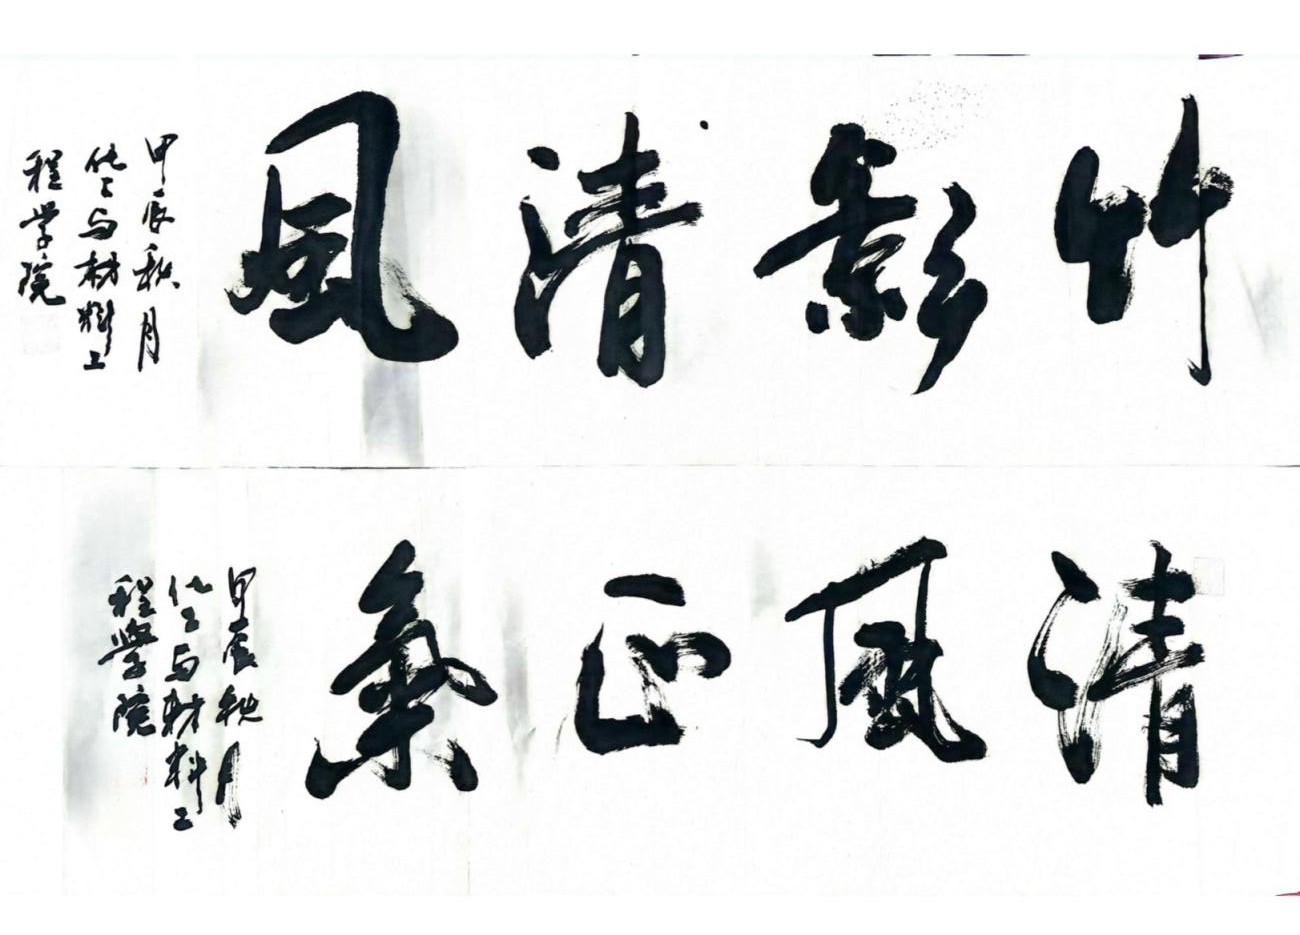 竹影清风
甲辰秋月
化工与材料工
程学院
清风正氣
甲辰秋月
化工与材料工
程学院